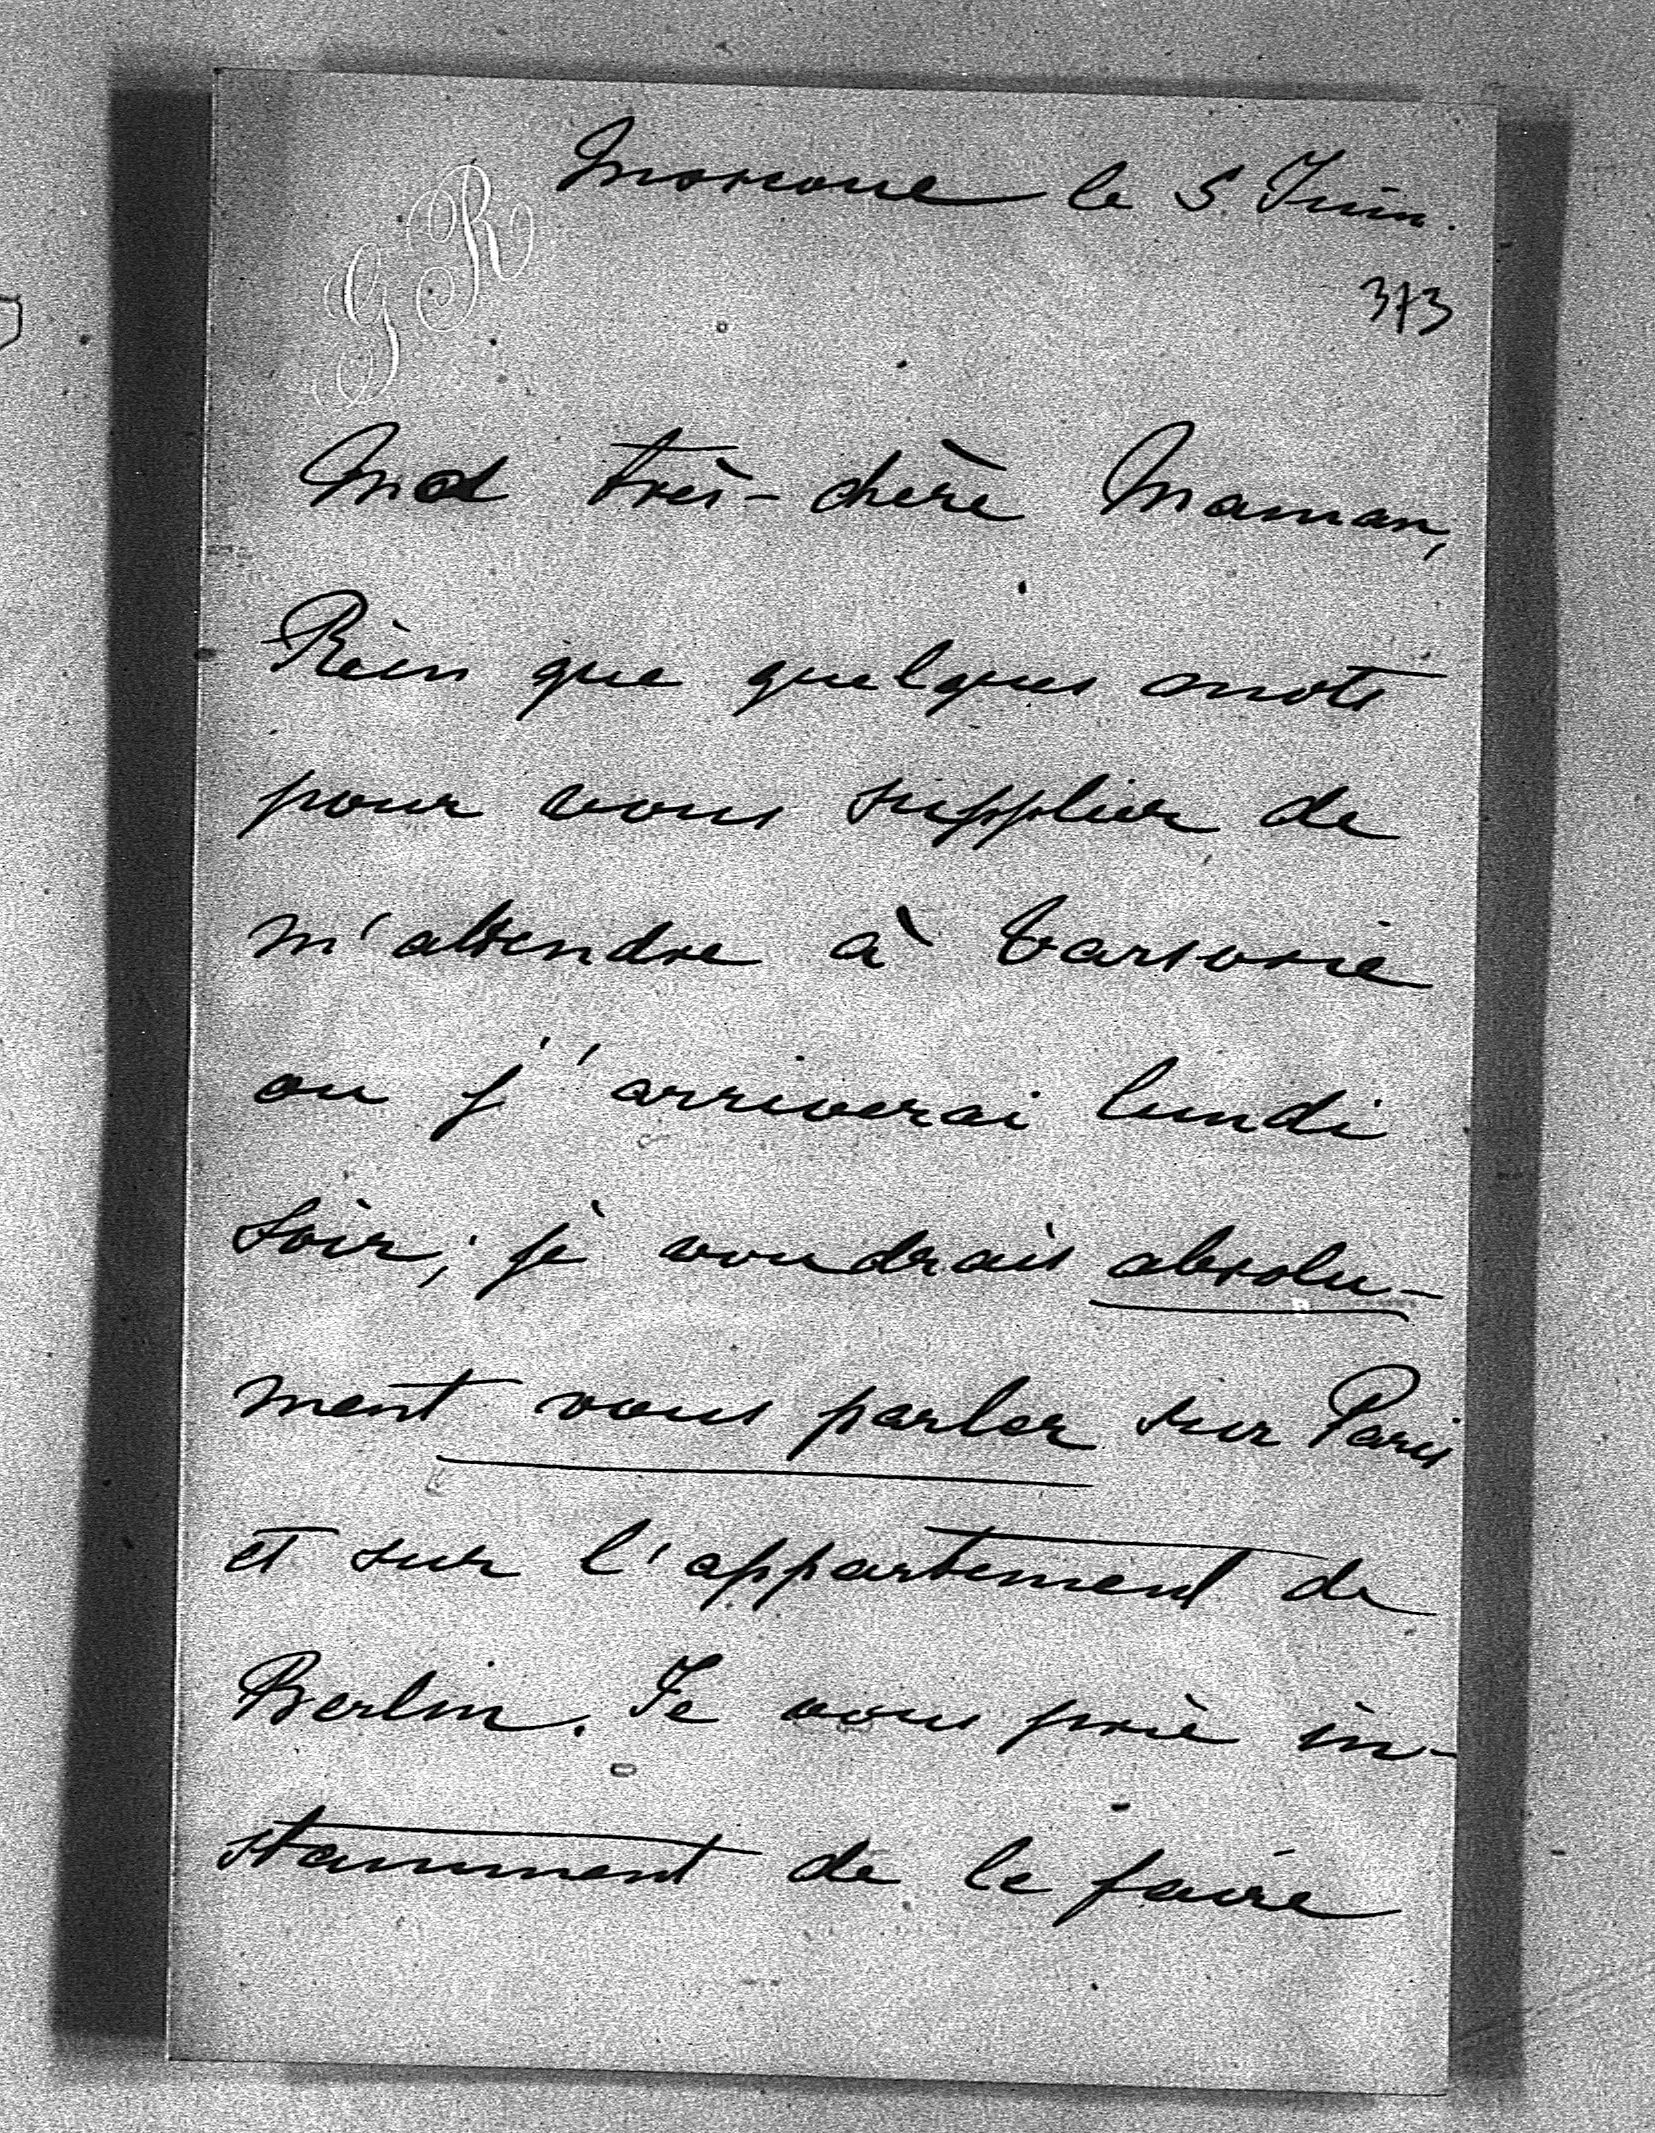 GR
Moscoue le 5 Juin.
373
Ma très-chère Maman,
Rien que quelques mots
pour vous supplier de
m'attendre à Varsovie
ou j'arriverai lundi
soir; je voudrais absolu-
ment vous parler sur Paris
et sur l'appartement de
Berlin. Je vous prie in-
stamment de le faire